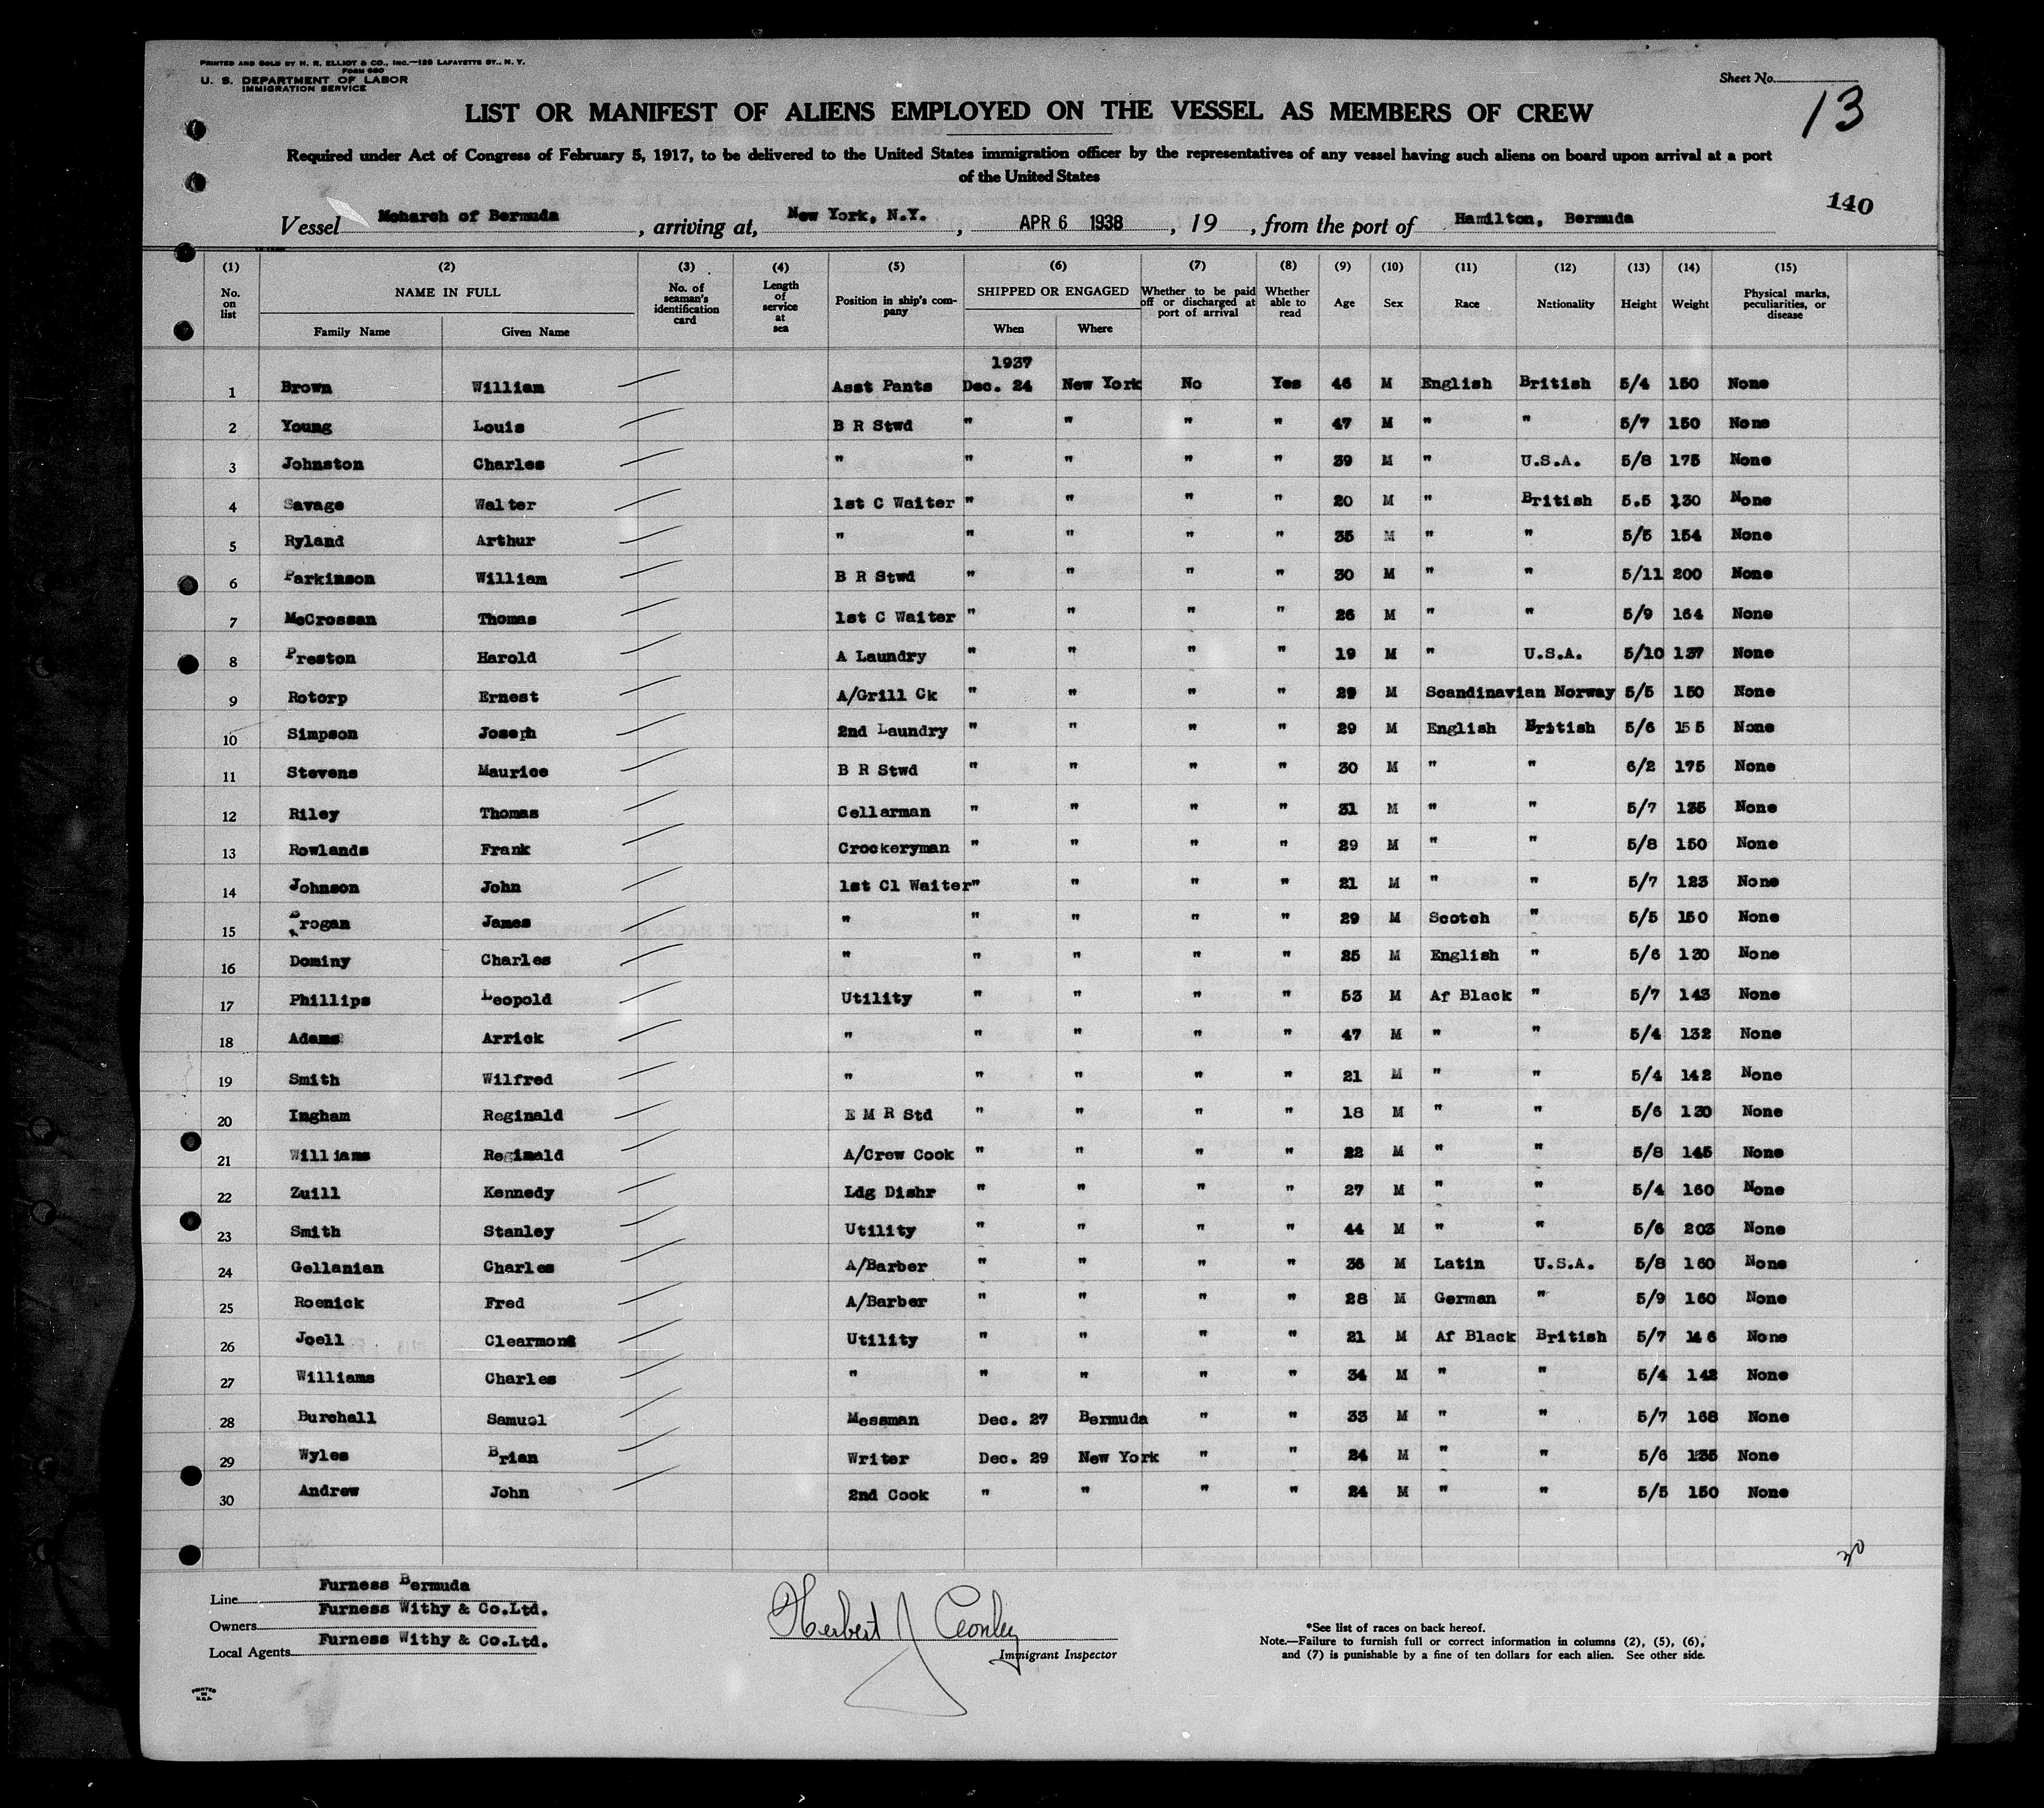 PRINTED AND SOLD BY H. R. ELLIOT & CO., INC.—129 LAFAYETTE ST., N. Y.
FORM 680
U. S. DEPARTMENT OF LABOR
IMMIGRATION SERVICE
Sheet No.
13
LIST OR MANIFEST OF ALIENS EMPLOYED ON THE VESSEL AS MEMBERS OF CREW
Required under Act of Congress of February 5, 1917, to be delivered to the United States immigration officer by the representatives of any vessel having such aliens on board upon arrival at a port
of the United States
140
Vessel Monarch of Bermuda, arriving at, New York, N.Y., APR 6 1938, 19 , from the port of Hamilton, Bermuda
(1) (2) (3) (4) (5) (6) (7) (8) (9) (10) (11) (12) (13) (14) (15)
No. on list NAME IN FULL Family Name Given Name No. of seaman's identification card Length of service at sea Position in ship's company SHIPPED OR ENGAGED When Where Whether to be paid off or discharged at port of arrival Whether able to read Age Sex Race Nationality Height Weight Physical marks, peculiarities, or disease
1937
1 Brown William Asst Pants Dec. 24 New York No Yes 46 M English British 5/4 150 None
2 Young Louis B R Stwd " " " " 47 M " " 5/7 150 None
3 Johnston Charles " " " " " 39 M " U.S.A. 5/8 175 None
4 Savage Walter 1st C Waiter " " " " 20 M " British 5.5 130 None
5 Ryland Arthur " " " " " 35 M " " 5/5 154 None
6 Parkinson William B R Stwd " " " " 30 M " " 5/11 200 None
7 McCrossan Thomas 1st C Waiter " " " " 26 M " " 5/9 164 None
8 Preston Harold A Laundry " " " " 19 M " U.S.A. 5/10 137 None
9 Rotorp Ernest A/Grill Ck " " " " 29 M Scandinavian Norway 5/5 150 None
10 Simpson Joseph 2nd Laundry " " " " 29 M English British 5/6 155 None
11 Stevens Maurice B R Stwd " " " " 30 M " " 6/2 175 None
12 Riley Thomas Cellarman " " " " 31 M " " 5/7 135 None
13 Rowlands Frank Crockeryman " " " " 29 M " " 5/8 150 None
14 Johnson John 1st Cl Waiter " " " " 21 M " " 5/7 123 None
15 Brogan James " " " " " 29 M Scotch " 5/5 150 None
16 Dominy Charles " " " " " 25 M English " 5/6 130 None
17 Phillips Leopold Utility " " " " 53 M Af Black " 5/7 143 None
18 Adams Arrick " " " " " 47 M " " 5/4 132 None
19 Smith Wilfred " " " " " 21 M " " 5/4 142 None
20 Ingham Reginald E M R Std " " " " 18 M " " 5/6 130 None
21 Williams Reginald A/Crew Cook " " " " 22 M " " 5/8 145 None
22 Zuill Kennedy Ldg Dishr " " " " 27 M " " 5/4 160 None
23 Smith Stanley Utility " " " " 44 M " " 5/6 203 None
24 Gellanian Charles A/Barber " " " " 36 M Latin U.S.A. 5/8 160 None
25 Roenick Fred A/Barber " " " " 28 M German " 5/9 160 None
26 Joell Clearmont Utility " " " " 21 M Af Black British 5/7 146 None
27 Williams Charles " " " " " 34 M " " 5/4 142 None
28 Burchall Samuel Messman Dec. 27 Bermuda " " 33 M " " 5/7 168 None
29 Wyles Brian Writer Dec. 29 New York " " 24 M " " 5/6 135 None
30 Andrew John 2nd Cook " " " " 24 M " " 5/5 150 None
30
Line Furness Bermuda
Owners Furness Withy & Co.Ltd.
Local Agents Furness Withy & Co.Ltd.
Herbert J
Immigrant Inspector
*See list of races on back hereof.
Note.—Failure to furnish full or correct information in columns (2), (5), (6),
and (7) is punishable by a fine of ten dollars for each alien. See other side.
PRINTED
IN
U.S.A.